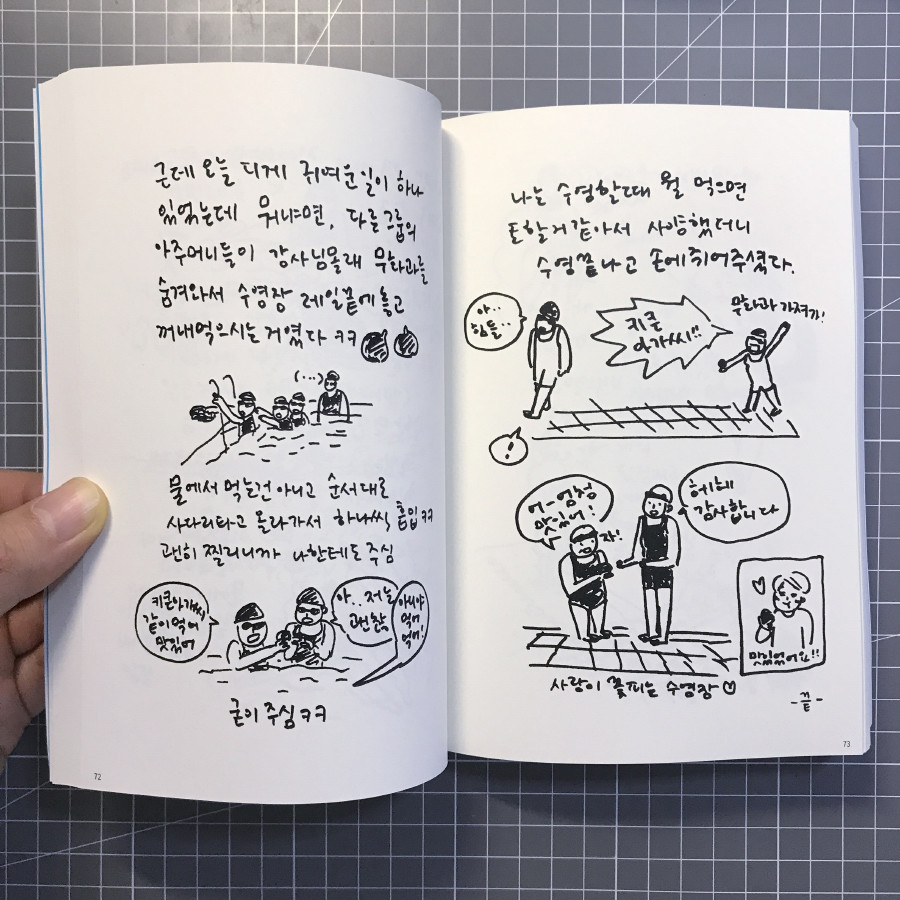 근데 오늘 디게 귀여운일이 하나
있었는데 뭐냐면, 다른그룹의
아주머니들이 강사님몰래 무화과를
숨겨와서 수영장 레일끝에 놓고
꺼내먹으시는 거였다 ㅋㅋ
(...)
물에서 먹는건 아니고 순서대로
사다리타고 올라가서 하나씩 흡입 ㅋㅋ
괜히 찔리니까 나한테도 주심
키큰아가씨
같이먹어
맛있어
아..저는
괜찮
아니야
먹어
먹어!
굳이 주심 ㅋㅋ
72
나는 수영할때 뭘 먹으면
토할거같아서 사양했더니
수영끝나고 손에 쥐어주셨다.
아..
힘들..
키큰
아가씨!!
무화과 가져가!
!
어-엄청
맛있어!
자!
헤헤
감사합니다
맛있었어요!!
사랑이 꽃피는 수영장♡
-끝-
73